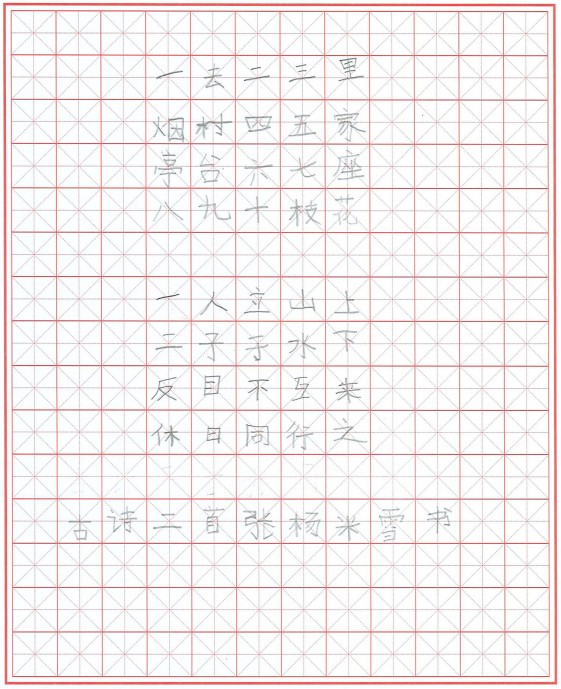 一去二三里
烟村四五家
亭台六七座
八九十枝花
一人立山上
二子于水下
反目不互来
休日同行之
古诗二首张杨米雪书